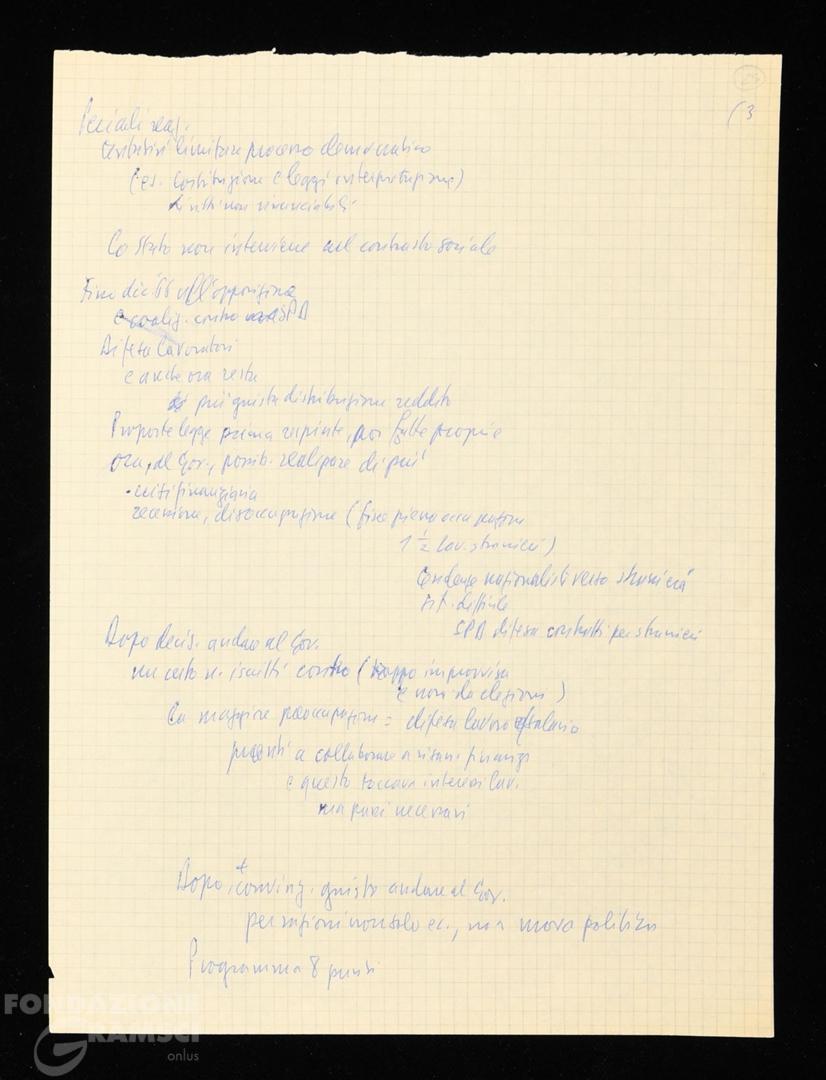 23
(3
tentativi limitare processo democratico
(es. Costituzione e leggi interpretazione)
Diritti non rinunciabili
Lo Stato non interviene nel contrasto sociale
Fino dic. 66 all'opposizione
e coaliz. contro SPD
Difesa lavoratori
e anche ora resta
più giusta distribuzione reddito
Proposte legge prima respinte, poi fatte proprie
ora, al Gov., possib. realizzare di più
crisi finanziaria
recessione, disoccupazione (fine piena occupazione
1 ½ lav. stranieri)
tendenze nazionalisti verso stranieri
sit. difficile
SPD difesa contratti per stranieri
Dopo decis. andare al Gov.
un certo n. iscritti contro (troppo improvvisa
e non da elezioni)
La maggiore preoccupazione = difesa lavoro e salario
pronti a collaborare a risan. finanze
e questo toccava interessi lav.
ma passi necessari
Dopo, + conving. giusto andare al Gov.
per ragioni non solo ec., ma nuova politica
Programma 8 punti
FONDAZIONE
GRAMSCI
onlus